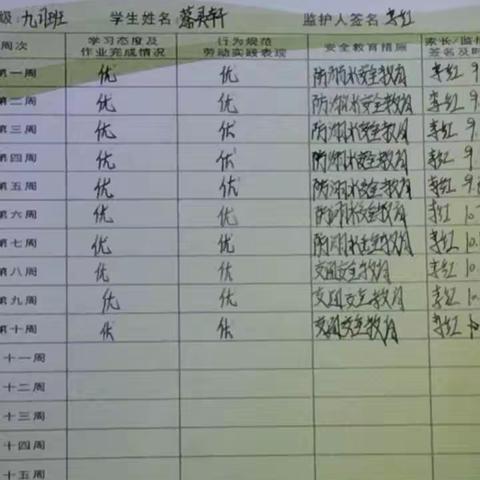 级:九(1)班 学生姓名: 监护人签名 李红
周次 学习态度及作业完成情况 行为规范劳动实践表现 安全教育措施 家长/监护签名及时
第一周 优 优 防溺水安全教育 李红 9.
第二周 优 优 防溺水安全教育 李红 9.
第三周 优 优 防溺水安全教育 李红 9.
第四周 优 优 防溺水安全教育 李红 9.
第五周 优 优 防溺水安全教育 李红 9.
第六周 优 优 防溺水安全教育 李红 10.
第七周 优 优 防溺水安全教育 李红 10.
第八周 优 优 交通安全教育 李红 10.
第九周 优 优 交通安全教育 李红 10.
第十周 优 优 交通安全教育 李红 10.
十一周
十二周
十三周
十四周
十五周